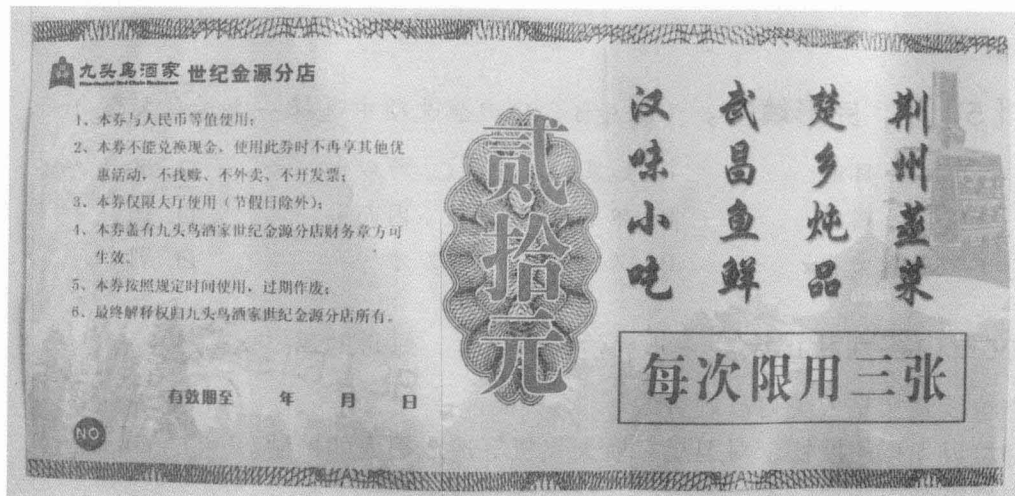 九头鸟酒家 世纪金源分店
1、本券与人民币等值使用;
2、本券不能兑换现金，使用此券时不再享其他优
惠活动，不找赎、不外卖、不开发票;
3、本券仅限大厅使用（节假日除外）;
4、本券盖有九头鸟酒家世纪金源分店财务章方可
生效。
5、本券按照规定时间使用，过期作废;
6、最终解释权归九头鸟酒家世纪金源分店所有。
有效期至 年 月 日
NO
贰拾元
荆州蒸菜
楚乡炖品
武昌鱼鲜
汉味小吃
每次限用三张